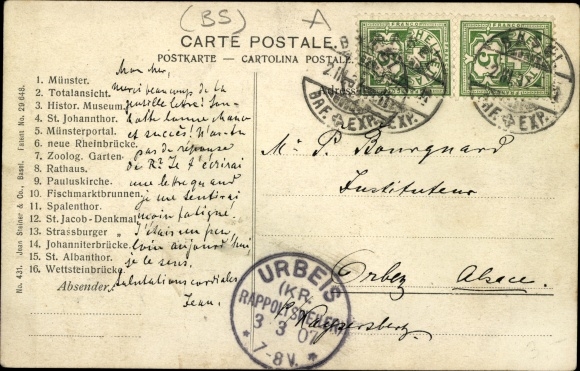 (BS)
A
CARTE POSTALE.
POSTKARTE – CARTOLINA POSTALE.
FRANCO
FRANCO
HELVETIA
5
5
BRF. EXP. EXP.
BRF. EXP.
1. Münster.
2. Totalansicht.
3. Histor. Museum.
4. St. Johannthor.
5. Münsterportal.
6. neue Rheinbrücke.
7. Zoolog. Garten.
8. Rathaus.
9. Pauluskirche.
10. Fischmarktbrunnen.
11. Spalenthor.
12. St. Jacob-Denkmal.
13. Strassburger "
14. Johanniterbrücke.
15. St. Albanthor.
16. Wettsteinbrücke.
Absender:
No. 431. Jean Steiner & Co., Basel. Patent No. 29648.
Mon cher,
merci beaucoup de ta
gentille lettre! Sou-
haite bonne chance
et succès! N'as-tu
pas de réponse
de R? Je t'écrirai
une lettre quand
je me sentirai
moin fatigué.
J'étais un peu
loin aujourd'hui,
je le sens.
Salutations cordiales
Jean.
M. P. Bourgnard
Instituteur
Orbey Alsace.
Kaysersberg.
URBEIS
(KR.
RAPPOLTSWEILER)
3 3 07
* 7-8 V. *